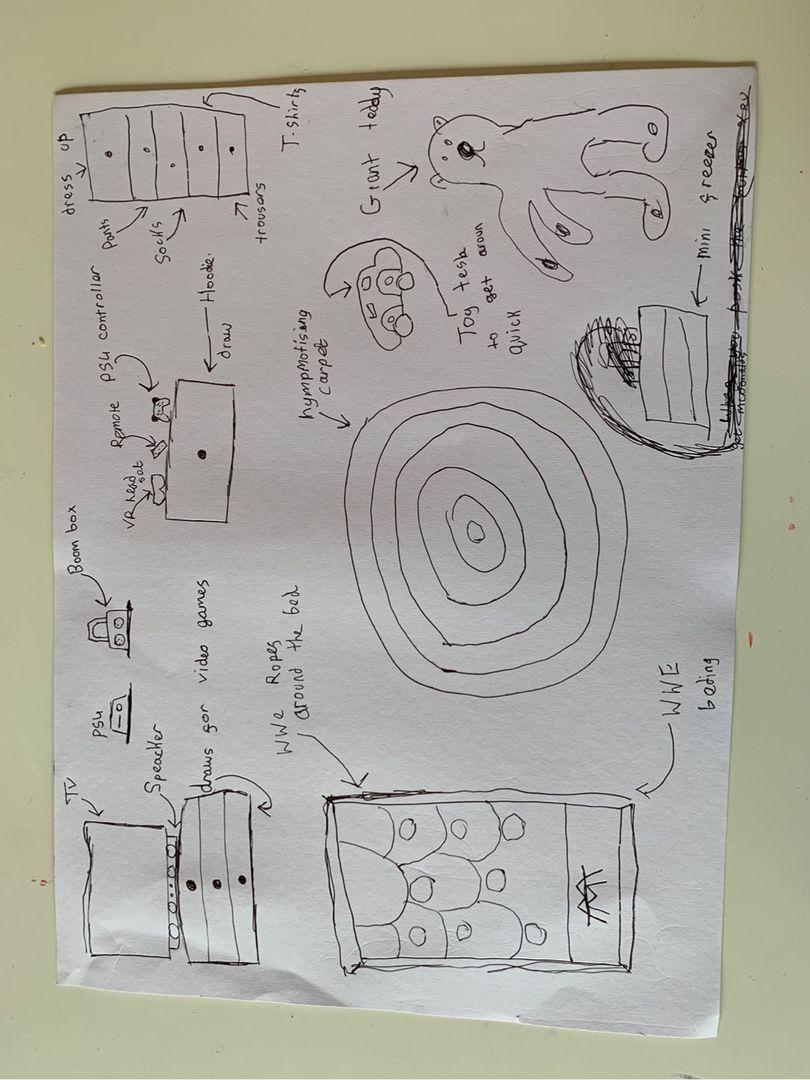 TV
PSU
Boom box
Speacker
draws for video games
VR head
set
Remote
PS4 controller
Hoodie
draw
dress up
Pants
Socks
trousers
T-shirts
WWe Ropes
around the bed
hympmotising
carpet
Toy tesla
to get aroun
quick
Giant teddy
WWE
beding
mini freezer